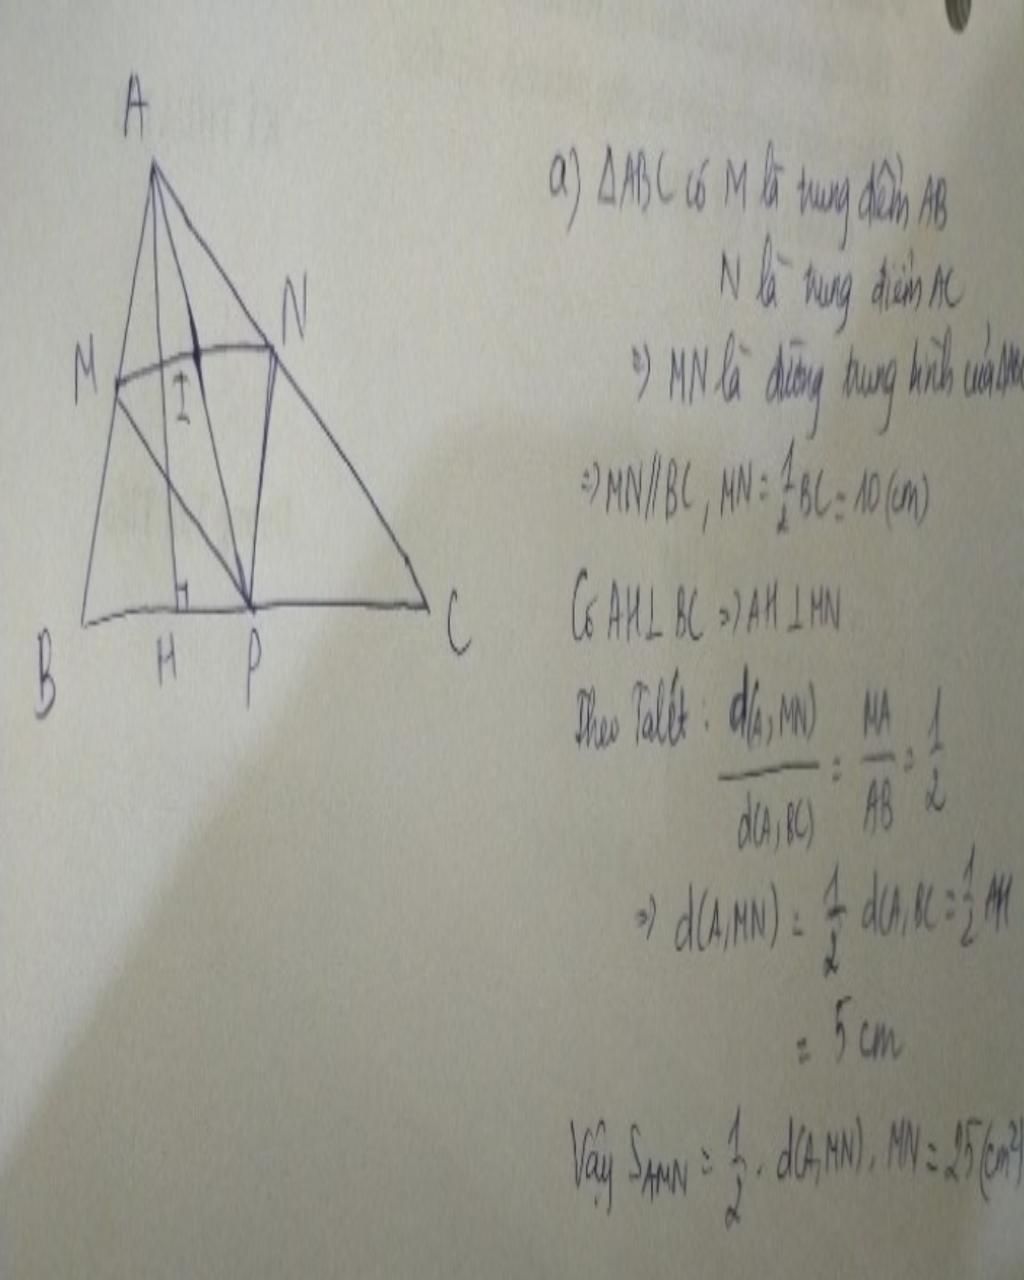 A
M
N
I
B
H
P
C
a) ΔABC có M là trung điểm AB
N là trung điểm AC
=> MN là đường trung bình của ΔABC
=> MN//BC, MN = 1/2 BC = 10 (cm)
Có AH⊥BC => AH⊥MN
Theo Talét: d(A,MN)/d(A,BC) = MA/AB = 1/2
=> d(A,MN) = 1/2 d(A,BC = 1/2 AH
= 5 cm
Vậy S_AMN = 1/2 . d(A,MN). MN = 25 (cm²)